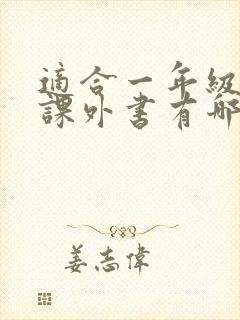 適合一年級
課外書有哪
姜志偉